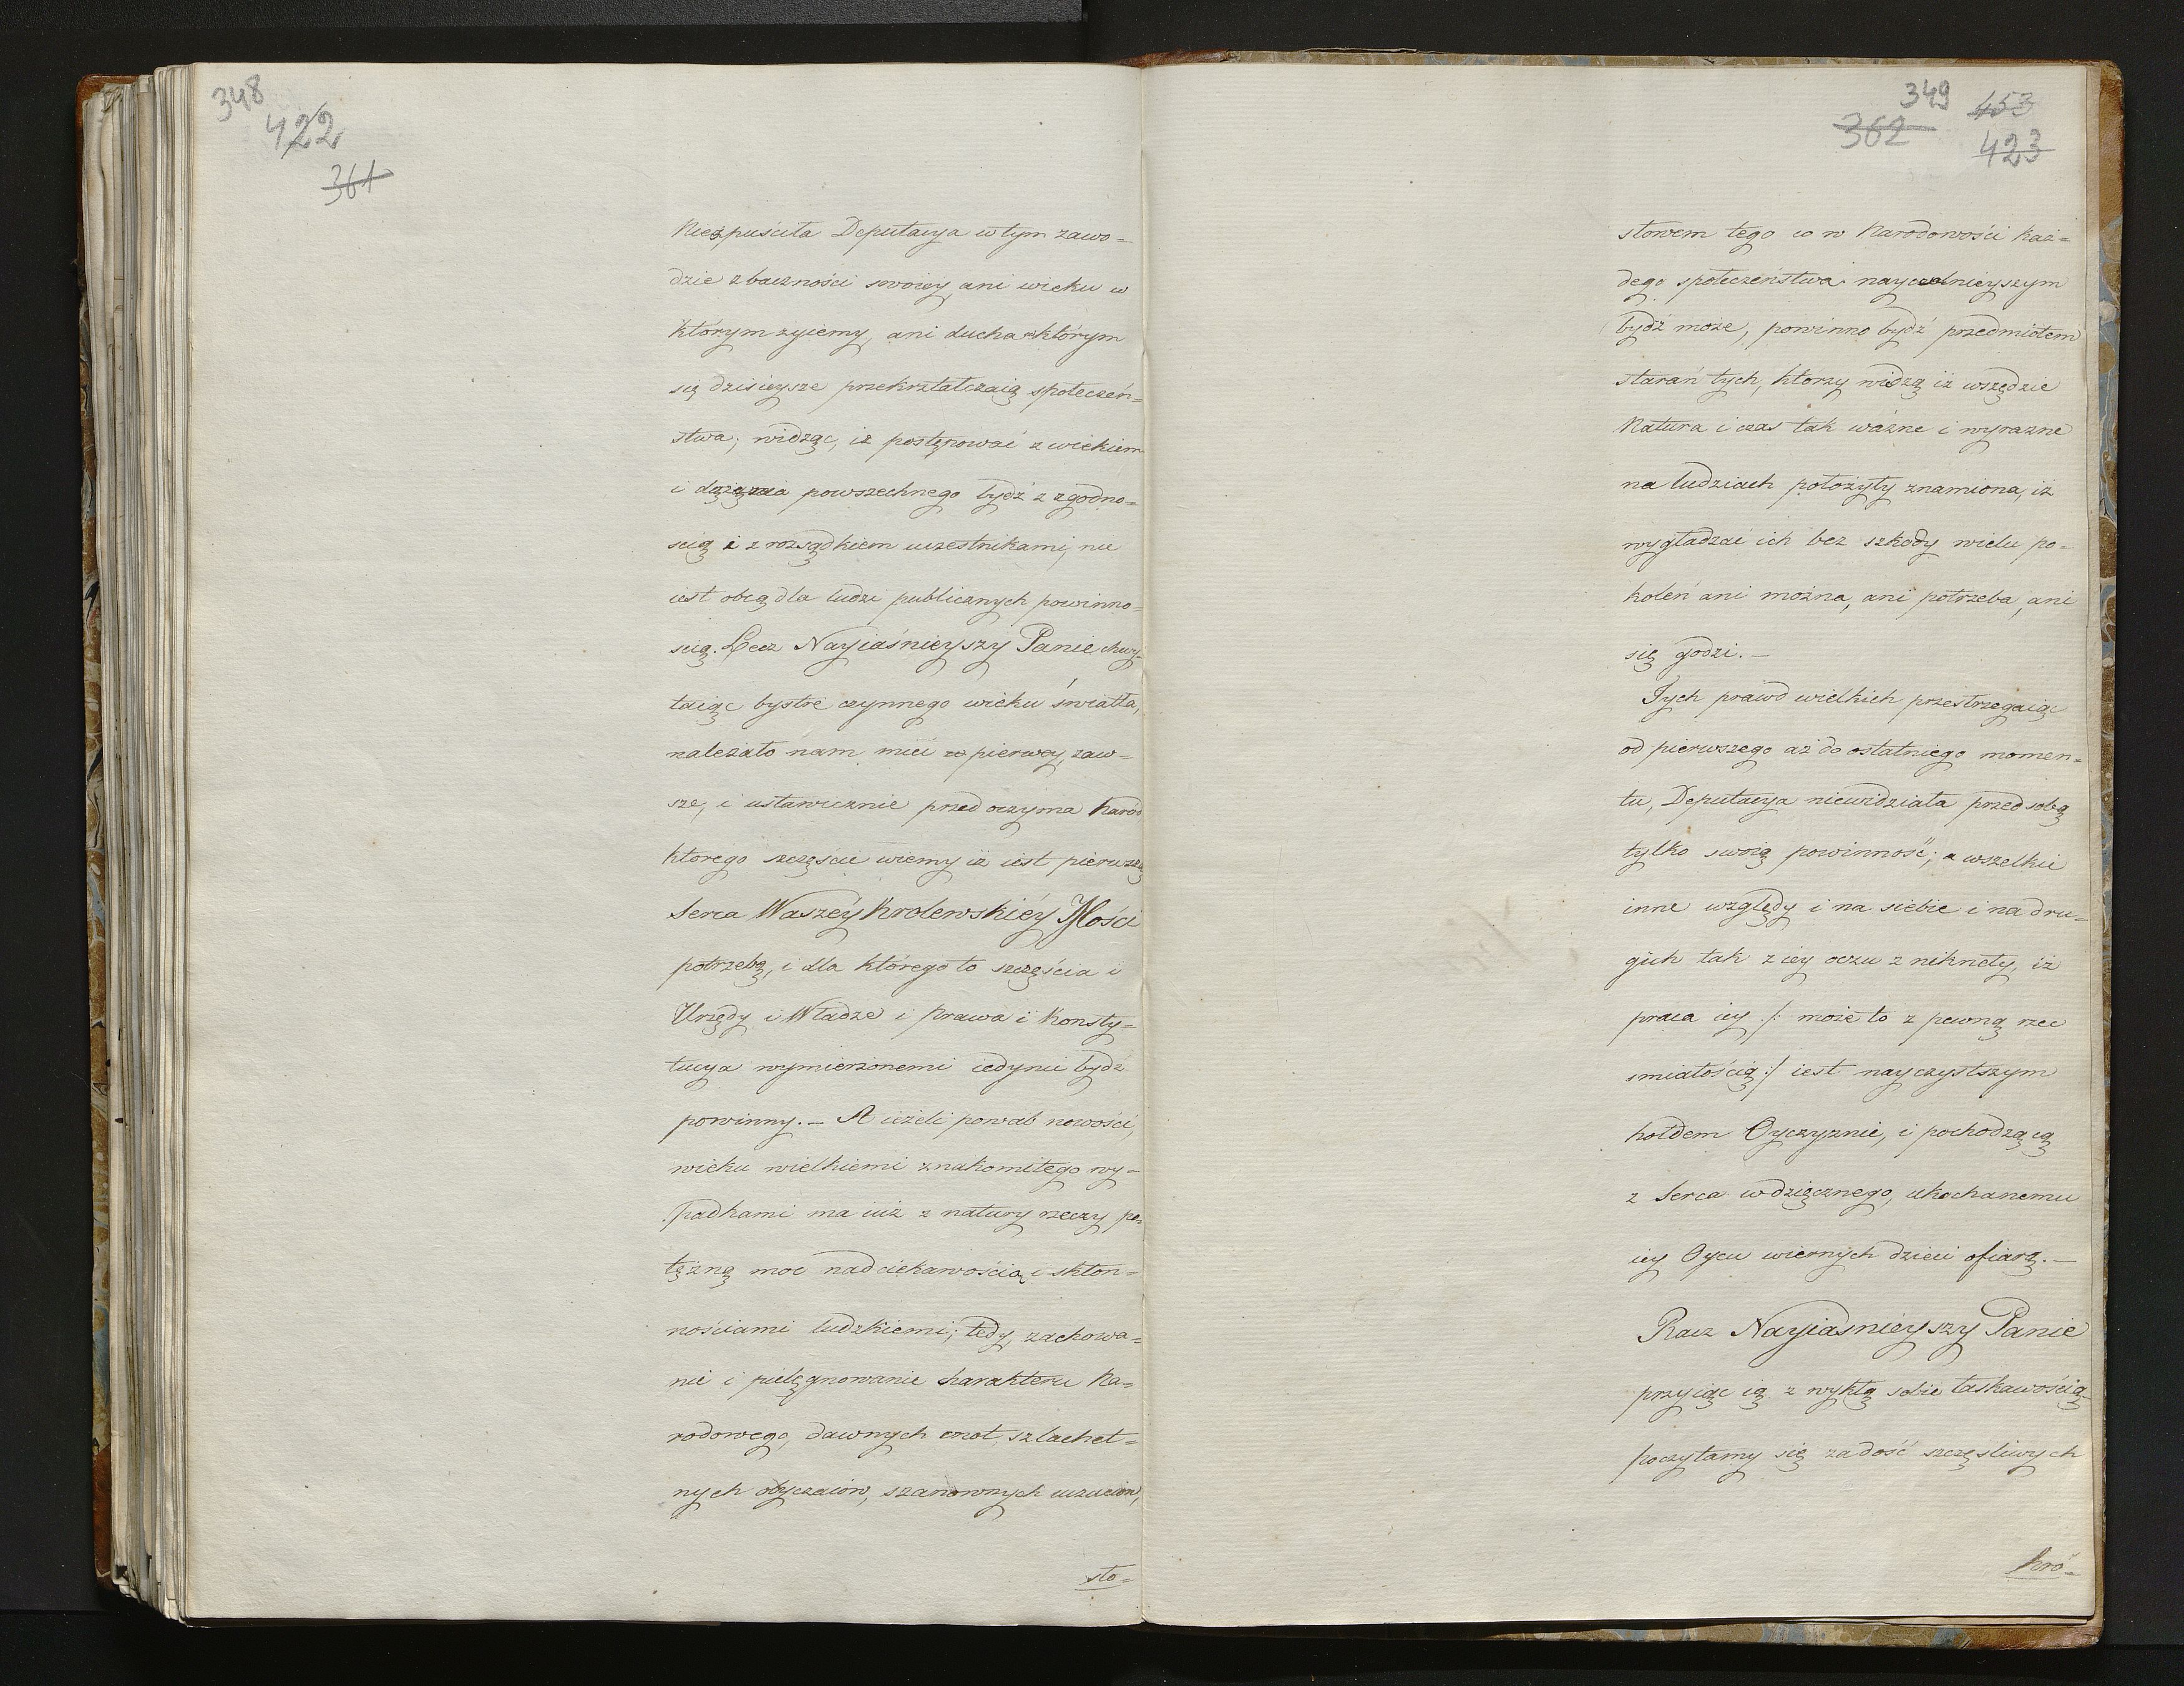 348
422
361
Niespuściła Deputacya w tym zawo=
dzie z baczności swoiey, ani wieku w
którym żyiemy, ani ducha którym
się dzisieysze przekrztałczaią społeczeń=
stwa; widząc, iż postępować z wiekiem
i dążenia powszechnego bydź z zgodno=
scią i z rozsądkiem uczestnikami, nie
iest obcą dla ludzi publicznych powinno=
scią. Lecz Nayiaśnieyszy Panie chwy=
taiąc bystre czynnego wieku światła,
należało nam mieć pierwey, zaw=
sze, i ustawicznie przed oczyma Naród
ktorego szczęście wiemy iż iest pierwszą
Serca Waszéy Krolewskiéy Mości
potrzebą, i dla którego to szczęścia i
Urzędy i Władze i Prawa i Konsty=
tucya wymierzonemi iedynie bydź
powinny. – A ieżeli powab nowości,
wieku wielkiemi znakomitego wy=
padkami ma iuż z natury rzeczy po=
tężną moc nad ciekawością i skłon=
nościami ludzkiemi; tedy, zachowa=
nie i pielęgnowanie charakteru Na=
rodowego, dawnych cnot, szlachet=
nych obyczaiów, szanownych uczuciów,
sło=
349
453
362
423
słowem tego co w Narodowości każ=
dego społeczeństwa naycelnieyszym
bydź może, powinno bydź przedmiotem
starań tych, ktorzy widzą iż wszędzie
Natura i czas tak ważne i wyrazne
na ludziach położyły znamiona, iż
wygładzać ich bez szkody wielu po=
koleń ani można, ani potrzeba, ani
się godzi. –
Tych prawd wielkich przestrzegaiąc
od pierwszego aż do ostatniego momen=
tu, Deputacya niewidziała przed sobą
tylko swoią powinność; a wszelkie
inne względy i na siebie i na dru=
gich tak z iey oczu znikneły, iż
praca iey /: może to z pewną rzec
smiałością :/ iest nayczystszym
hołdem Oyczyznie, i pochodzącą
z Serca wdzięcznego, ukochanemu
iey Oycu wiernych dzieci ofiarą. –
Racz Nayiasnieyszy Panie
przyiąc ią z wykłą sobie łaskawością
poczytamy się za dość szczęsliwych
Kró=